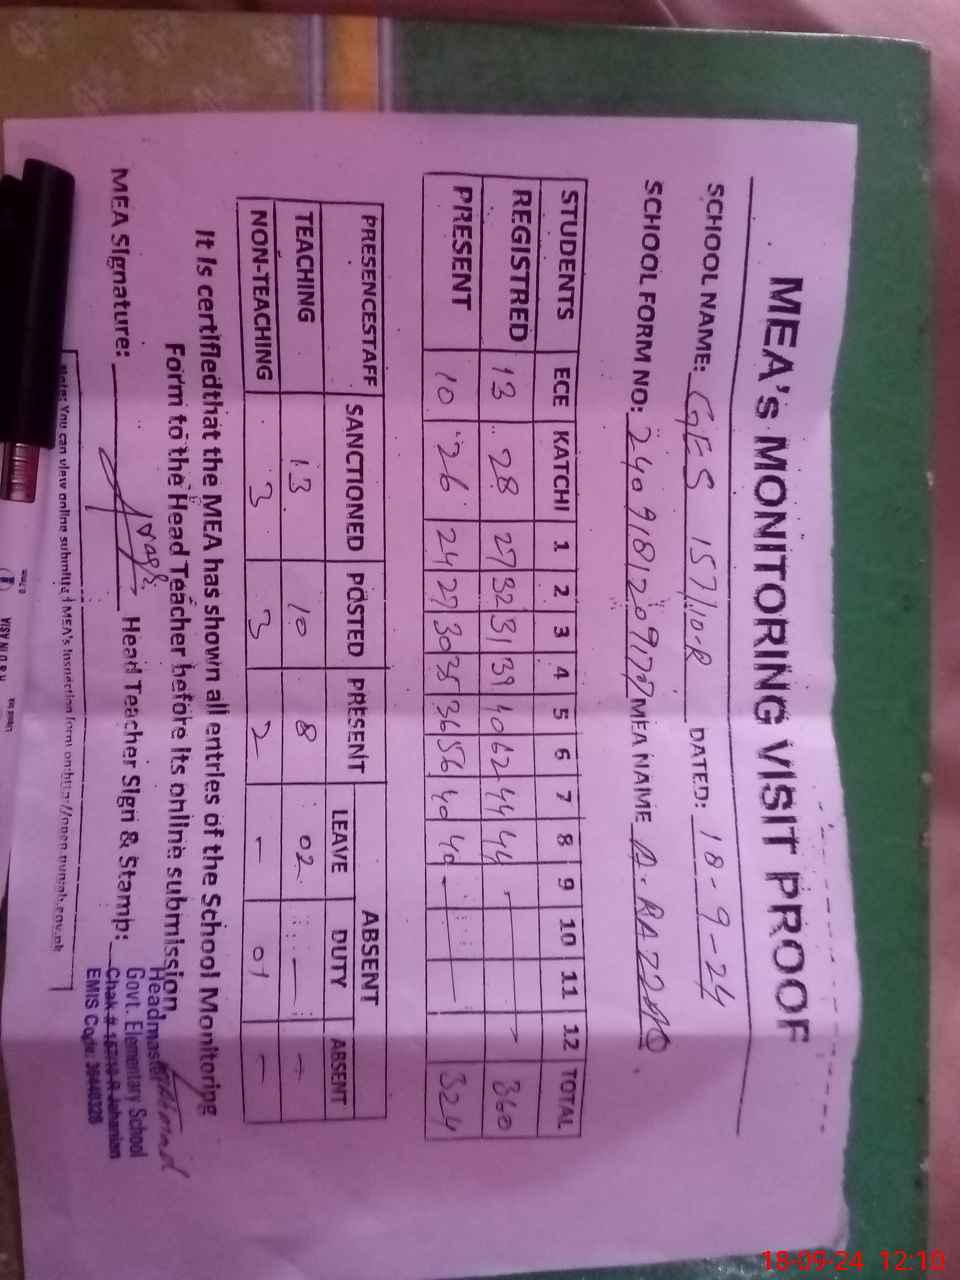 MEA's MONITORING VISIT PROOF
SCHOOL NAME: GES 157/10-R DATED: 18-9-24
SCHOOL FORM NO: MEA NAME A. RAZZAQ
STUDENTS ECE KATCHI 1 2 3 4 5 6 7 8 9 10 11 12 TOTAL
REGISTRED 13 28 27 32 31 39 40 62 44 44 - - 360
PRESENT 10 26 24 27 30 35 36 56 40 40 - - 324
PRESENCESTAFF SANCTIONED POSTED PRESENT ABSENT
LEAVE DUTY ABSENT
TEACHING 13 10 8 02 - -
NON-TEACHING 3 3 2 - 01 -
It is certifiedthat the MEA has shown all entries of the School Monitoring
Form to the Head Teacher before its online submission.
MEA Signature: Head Teacher Sign & Stamp:
Headmaster
Govt. Elementary School
Chak # 157/10-R Jahanian
EMIS Code:
Note: You can view online submitted MEA's Inspection form on:http://open.punjab.gov.pk
18-09-24 12:10